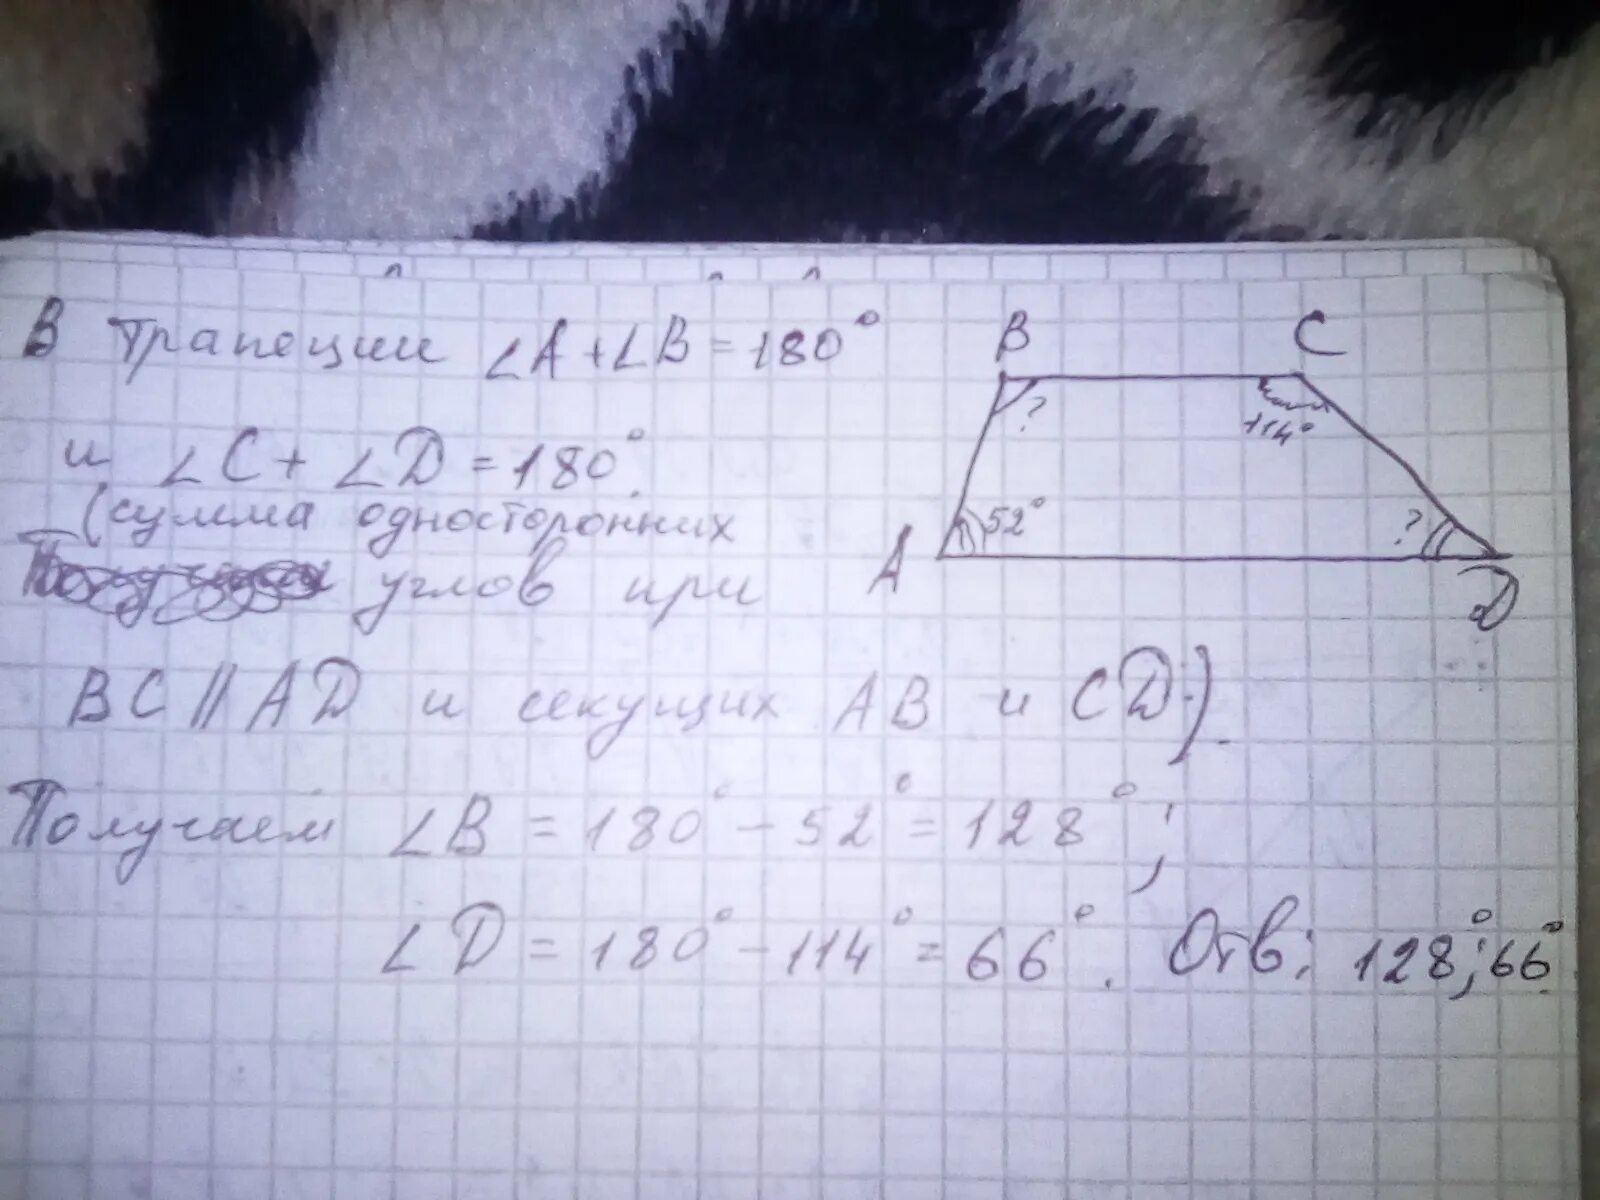 В трапеции ∠A+∠B=180°
и ∠C+ ∠D=180°.
(сумма односторонних
углов при
BC||AD и секущих AB и CD.)
Получаем ∠B = 180° - 52° = 128°;
∠D = 180° - 114° = 66°. Отв: 128°; 66°.
B C
? 114°
A 52° ? D